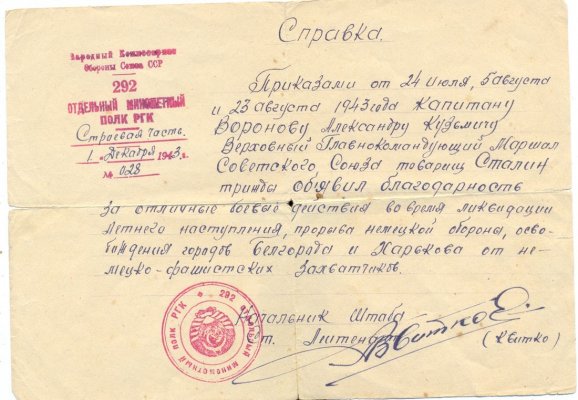 Справка.
Народный Комиссариат
Обороны Союза ССР
292
ОТДЕЛЬНЫЙ МИНОМЕТНЫЙ
ПОЛК РГК
Строевая часть.
1 „Декабря 1943 г.
№ 028
Приказами от 24 июля, 5 августа
и 23 августа 1943 года капитану
Воронову Александру Кузьмичу
Верховный Главнокомандующий Маршал
Советского Союза товарищ Сталин
трижды объявил благодарность
за отличные боевые действия во время ликвидации
летнего наступления, прорыва немецкой обороны, осво-
бождения городов Белгорода и Харькова от не-
мецко-фашистских захватчиков.
Начальник Штаба
ст. Лейтенант
(Квитко)
292 ОТДЕЛЬНЫЙ МИНОМЕТНЫЙ ПОЛК РГК